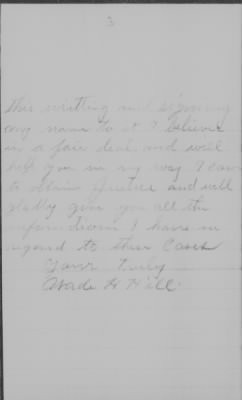 3
this writting and signing
my name to it I believe
in a fair deal and will
help you in any way I can
to obtain justice and will
gladly give you all the
information I have in
regard to this Case
Yours truly
Wade H Hill